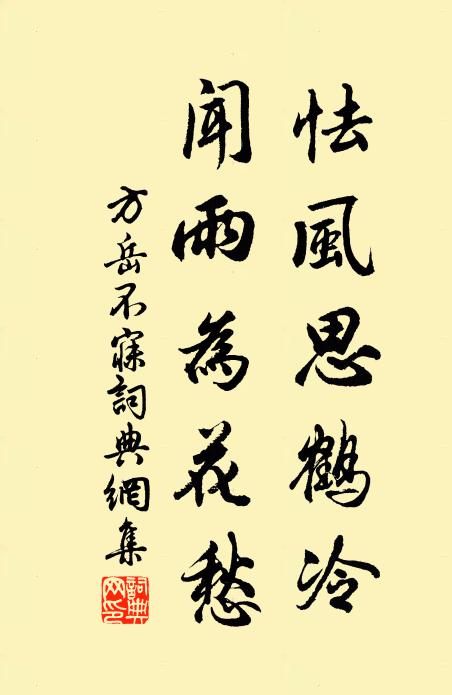 怯風思鶴冷
聞雨為花愁
方岳不寐詞典網集
詞典網印